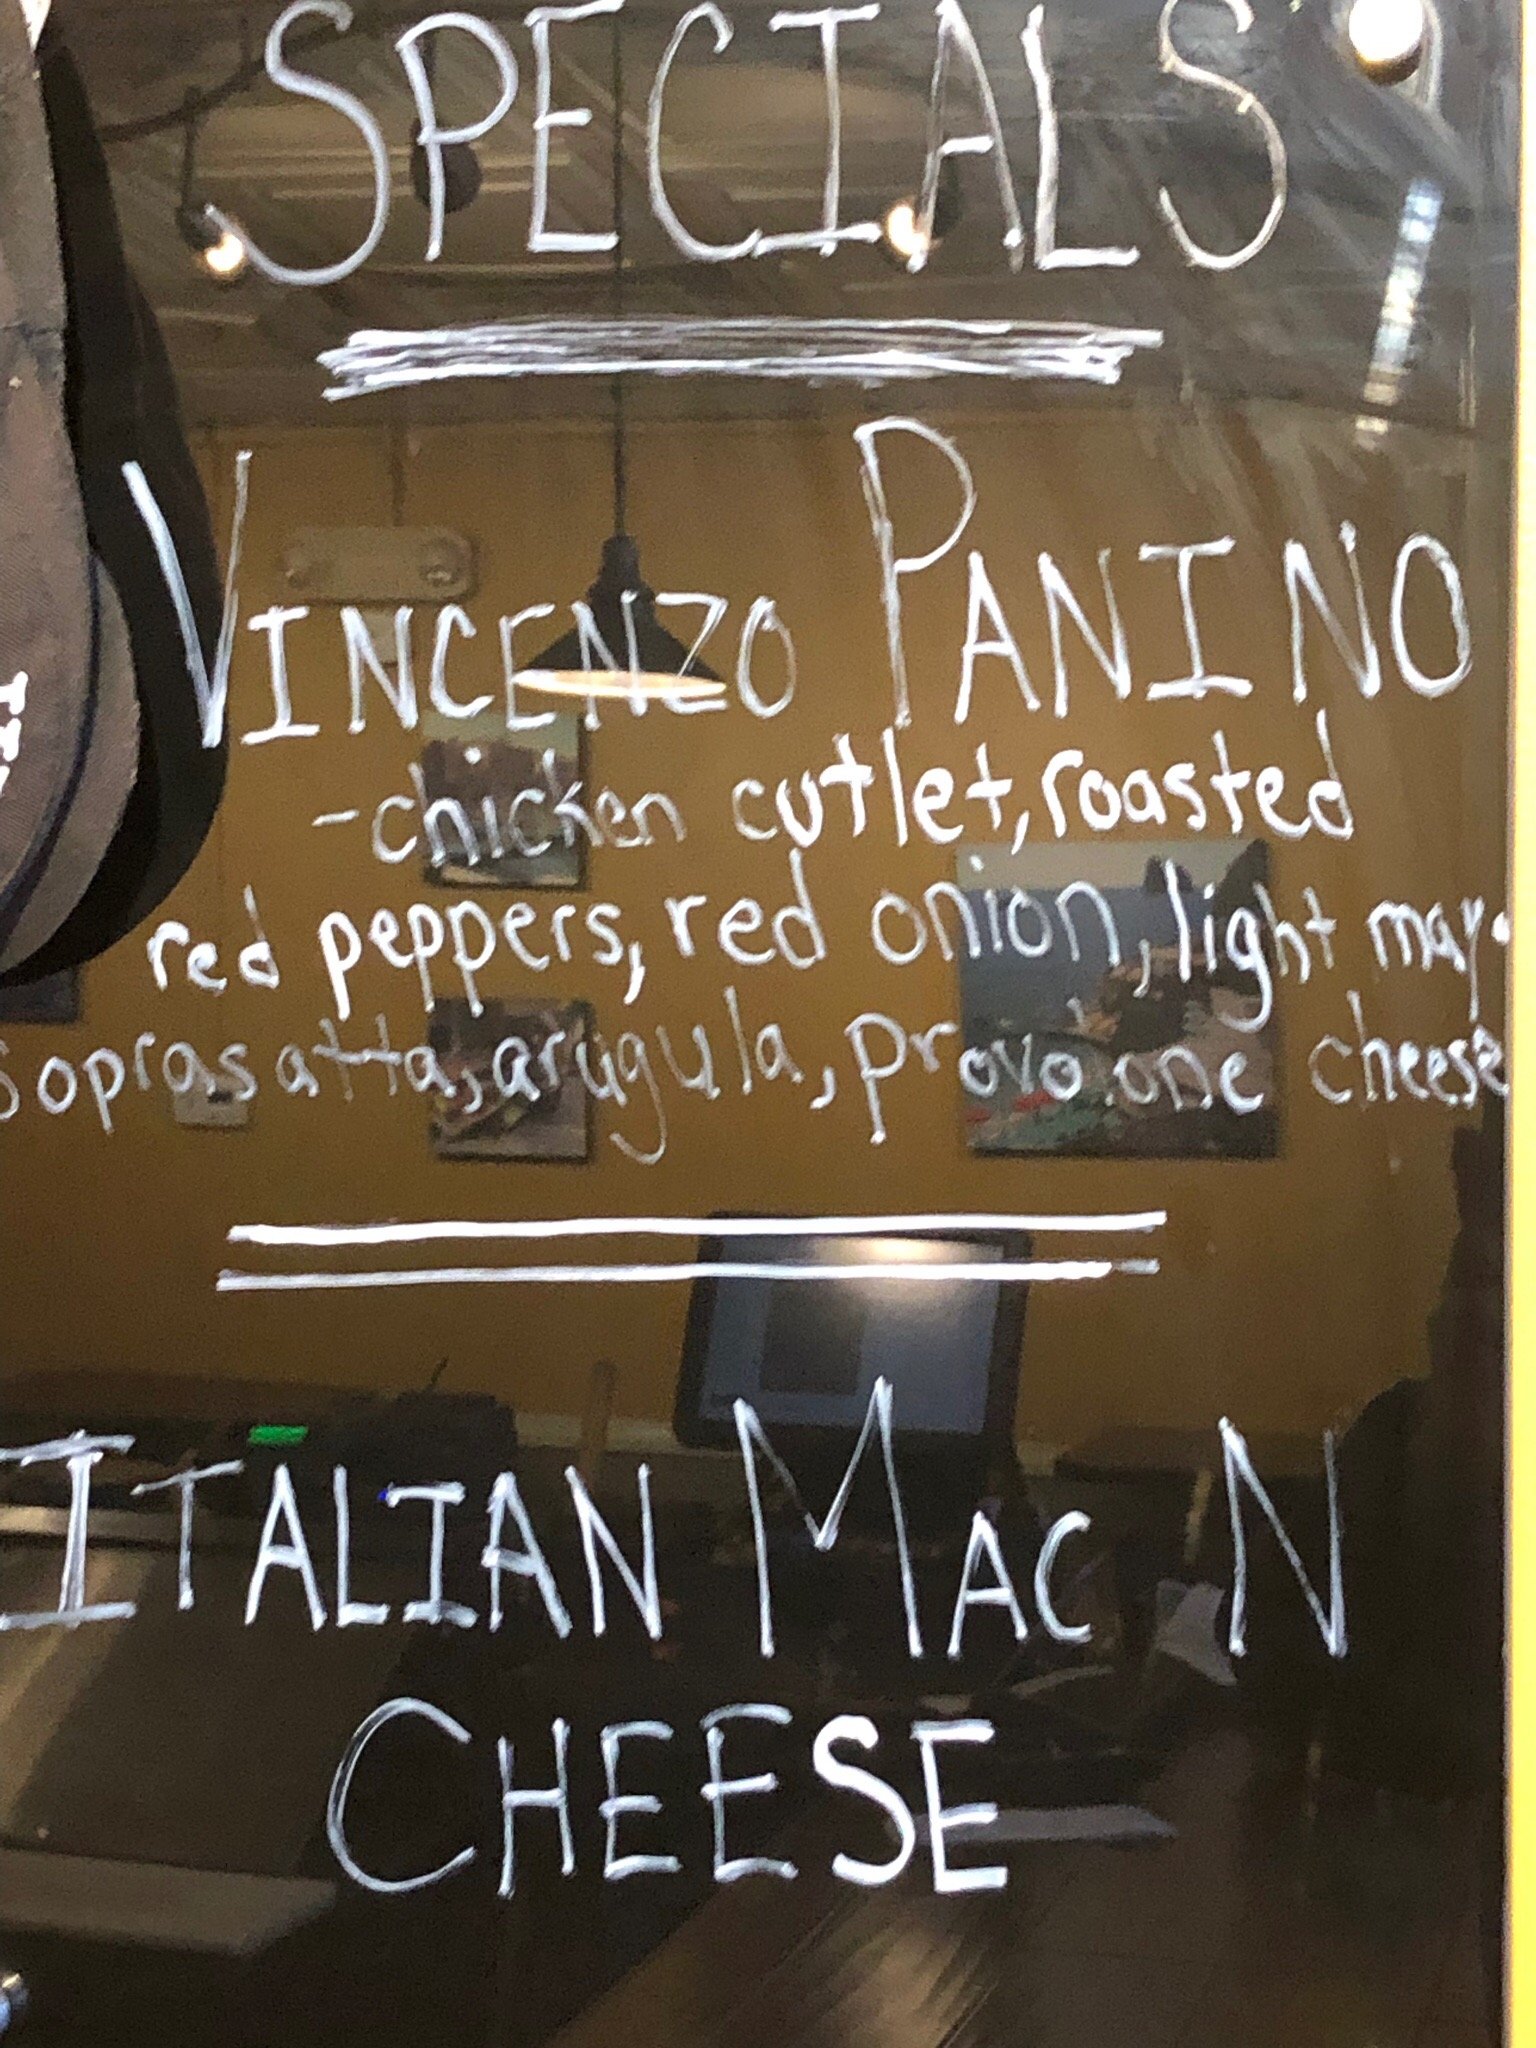 SPECIALS
VINCENZO PANINO
-chicken cutlet, roasted
red peppers, red onion, light may
soprasatta, arugula, provo one cheese
ITALIAN MAC N
CHEESE